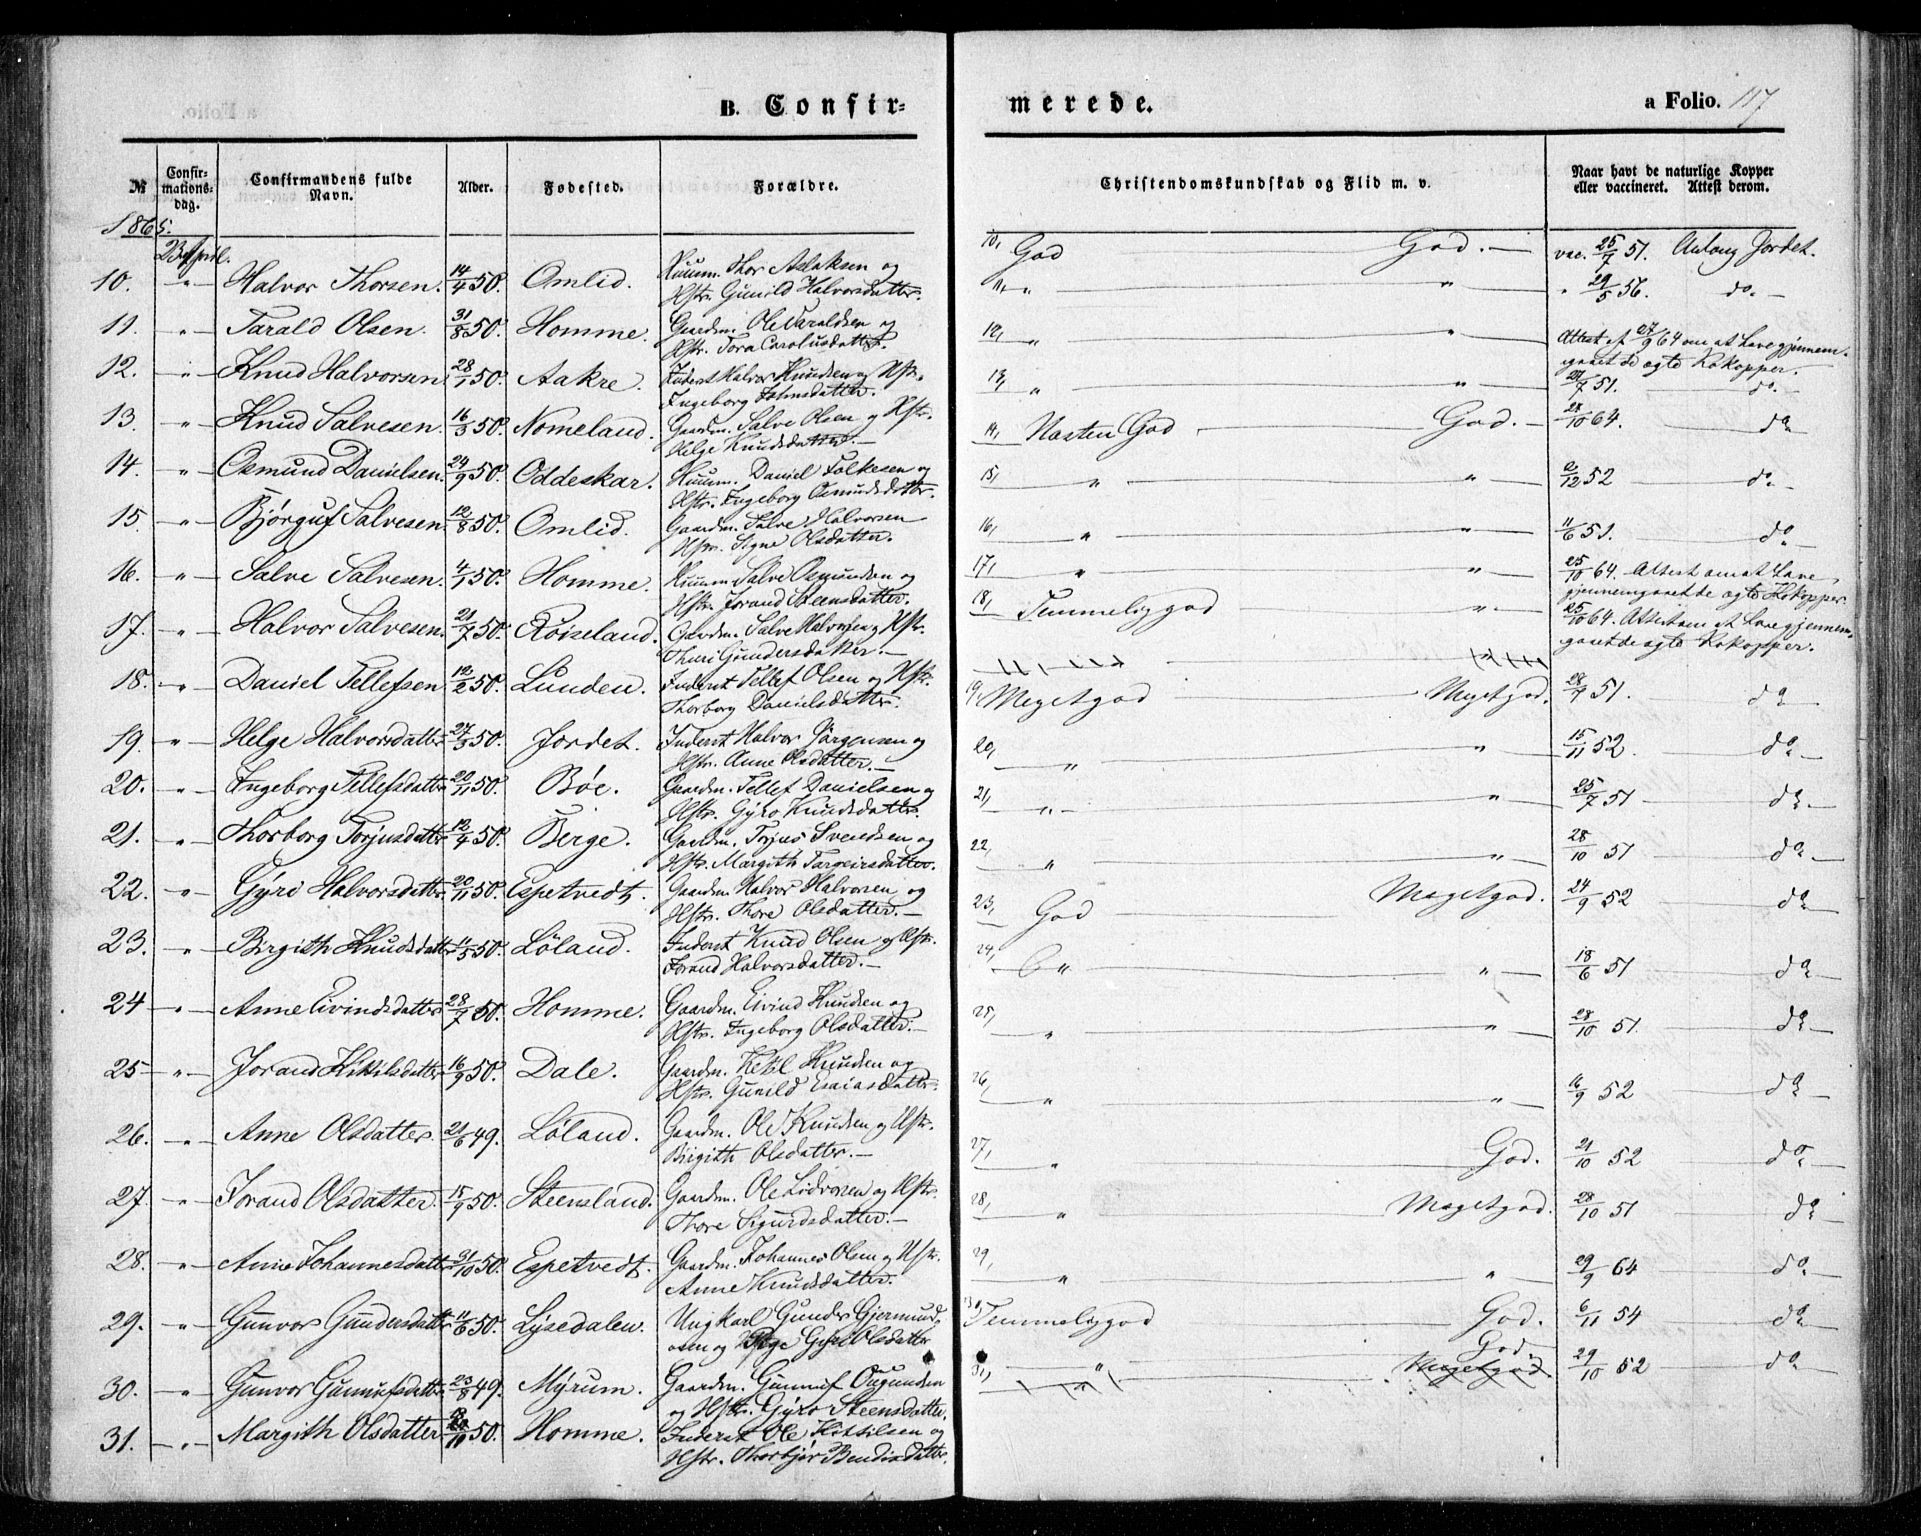 B. Confir-
merede.
a Folio. 117
№
Confir-
mations-
dag.
Confirmandens fulde
Navn.
Alder.
Fødested.
Forældre.
Christendomskundskab og Flid m. v.
Naar havt de naturlige Kopper
eller vaccineret. Attest derom.
1865.
23 April.
10. " Halvor Thorsen. 14/4 50. Omlid. Huusm. Thor Aslaksen og
Hstr. Gunild Halvorsdatter.
11. " Tarald Olsen. 31/8 50. Homme. Gaardm. Ole Taraldsen og
Hstr. Tora Carolusdatter.
12. " Knud Halvorsen. 28/1 50. Aakre. Inderst Halvor Knudsen og Hstr.
Ingeborg Johnsdatter.
13. " Knud Salvesen. 16/3 50. Nomeland. Gaardm. Salve Olsen og Hstr.
Helge Knudsdatter.
14. " Osmund Danielsen. 24/9 50. Oddeskar. Huusm. Daniel Folkesen og
Hstr. Ingeborg Osmundsdatter.
15. " Bjørguf Salvesen. 12/8 50. Omlid. Gaardm. Salve Halvorsen
Hstr. Signe Olsdatter.
16. " Salve Salvesen. 4/1 50. Homme. Huusm. Salve Osmundsen og
Hstr. Jorand Steensdatter.
17. " Halvor Salvesen. 21/7 50. Røiseland. Gaardm. Salve Halvorsen og Hstr.
Thuri Gundersdatter.
18. " Daniel Tellefsen 12/2 50. Lunden. Inderst Tellef Olsen og Hstr.
Thorborg Danielsdatter.
19. " Helge Halvorsdatter 27/3 50. Jordet. Inderst Halvor Jørgensen og
Hstr. Anne Olsdatter.
20. " Ingeborg Tellefsdatter 20/11 50. Bøe. Gaardm. Tellef Danielsen og
Hstr. Gyro Knudsdatter.
21. " Thorborg Torjusdatter 12/4 50. Berge. Gaardm. Torjus Svendsen og
Hstr. Margith Targeirsdatter.
22. " Gyri Halvorsdatter 20/11 50. Espetvedt. Gaardm. Halvor Halvorsen og
Hstr. Thore Olsdatter.
23. " Birgith Knudsdatter 11/5 50. Løland. Inderst Knud Olsen og Hstr.
Jorand Halvorsdatter.
24 " Anne Eivindsdatter 28/7 50. Homme. Gaardm. Eivind Knudsen og
Hstr. Ingeborg Olsdatter.
25 " Jorand Kittilsdatter 16/9 50. Dale. Gaardm. Ketil Knudsen og
Hstr. Gunild Esaiasdatter.
26. " Anne Olsdatter. 21/6 49. Løland. Gaardm. Ole Knudsen og Hstr.
Birgith Olsdatter.
27. " Jorand Olsdatter. 15/9 50. Steensland. Gaardm. Ole Lidvorsen og Hstr.
Thore Sigurdsdatter.
28. " Anne Johannesdatter 31/10 50. Espetvedt. Gaardm. Johannes Olsen og Hstr.
Anne Knudsdatter.
29. " Gunvor Gundersdatter 11/6 50. Lysedalen. Ungkarl Gunder Gjermund-
sen og Pige Gyri Olsdatter
30. " Gunvor Gunnufsdatter 23/8 49. Myrum. Gaardm. Gunnuf Ougundsen
og Hstr. Gyro Steensdatter.
31. " Margith Olsdatter 50. Homme. Inderst Ole Kittilsen og
Hstr. Thorbjør Bendixdatter.
10, God God. vac. 25/7 51. Autong Jordet.
11, " " " 29/5 56. do.
12, " " Attest af 27/9 64 om at have gjennem-
gaaet de ægte Kokopper.
13, " " 24/7 51. do.
14, Næsten God God. 28/10 64. do
15, " " 2/12 52 do.
16, " " 11/6 51. do
17, " " 25/10 64. Attest om at have
gjennemgaaet de ægte Kokopper
18, Temmelig god " 25/10 64. Attest om at have gjennem-
gaaet de ægte Kokopper.
19, Meget god Meget god. 28/7 51. do
20, " " 15/11 52. do.
21, " " 25/7 51 do.
22, " " 28/10 51 do.
23, God Meget god. 24/9 52 do.
24, " " 18/6 51 do.
25, " " 28/10 51. do.
26, " " 16/9 52 do.
27, " God. 21/10 52 do.
28, " Meget god. 28/10 51 do.
29, " " 29/9 64 do.
30, Temmelig god God. 6/11 54 do.
God.
31, " Meget god. 29/10 52 do.